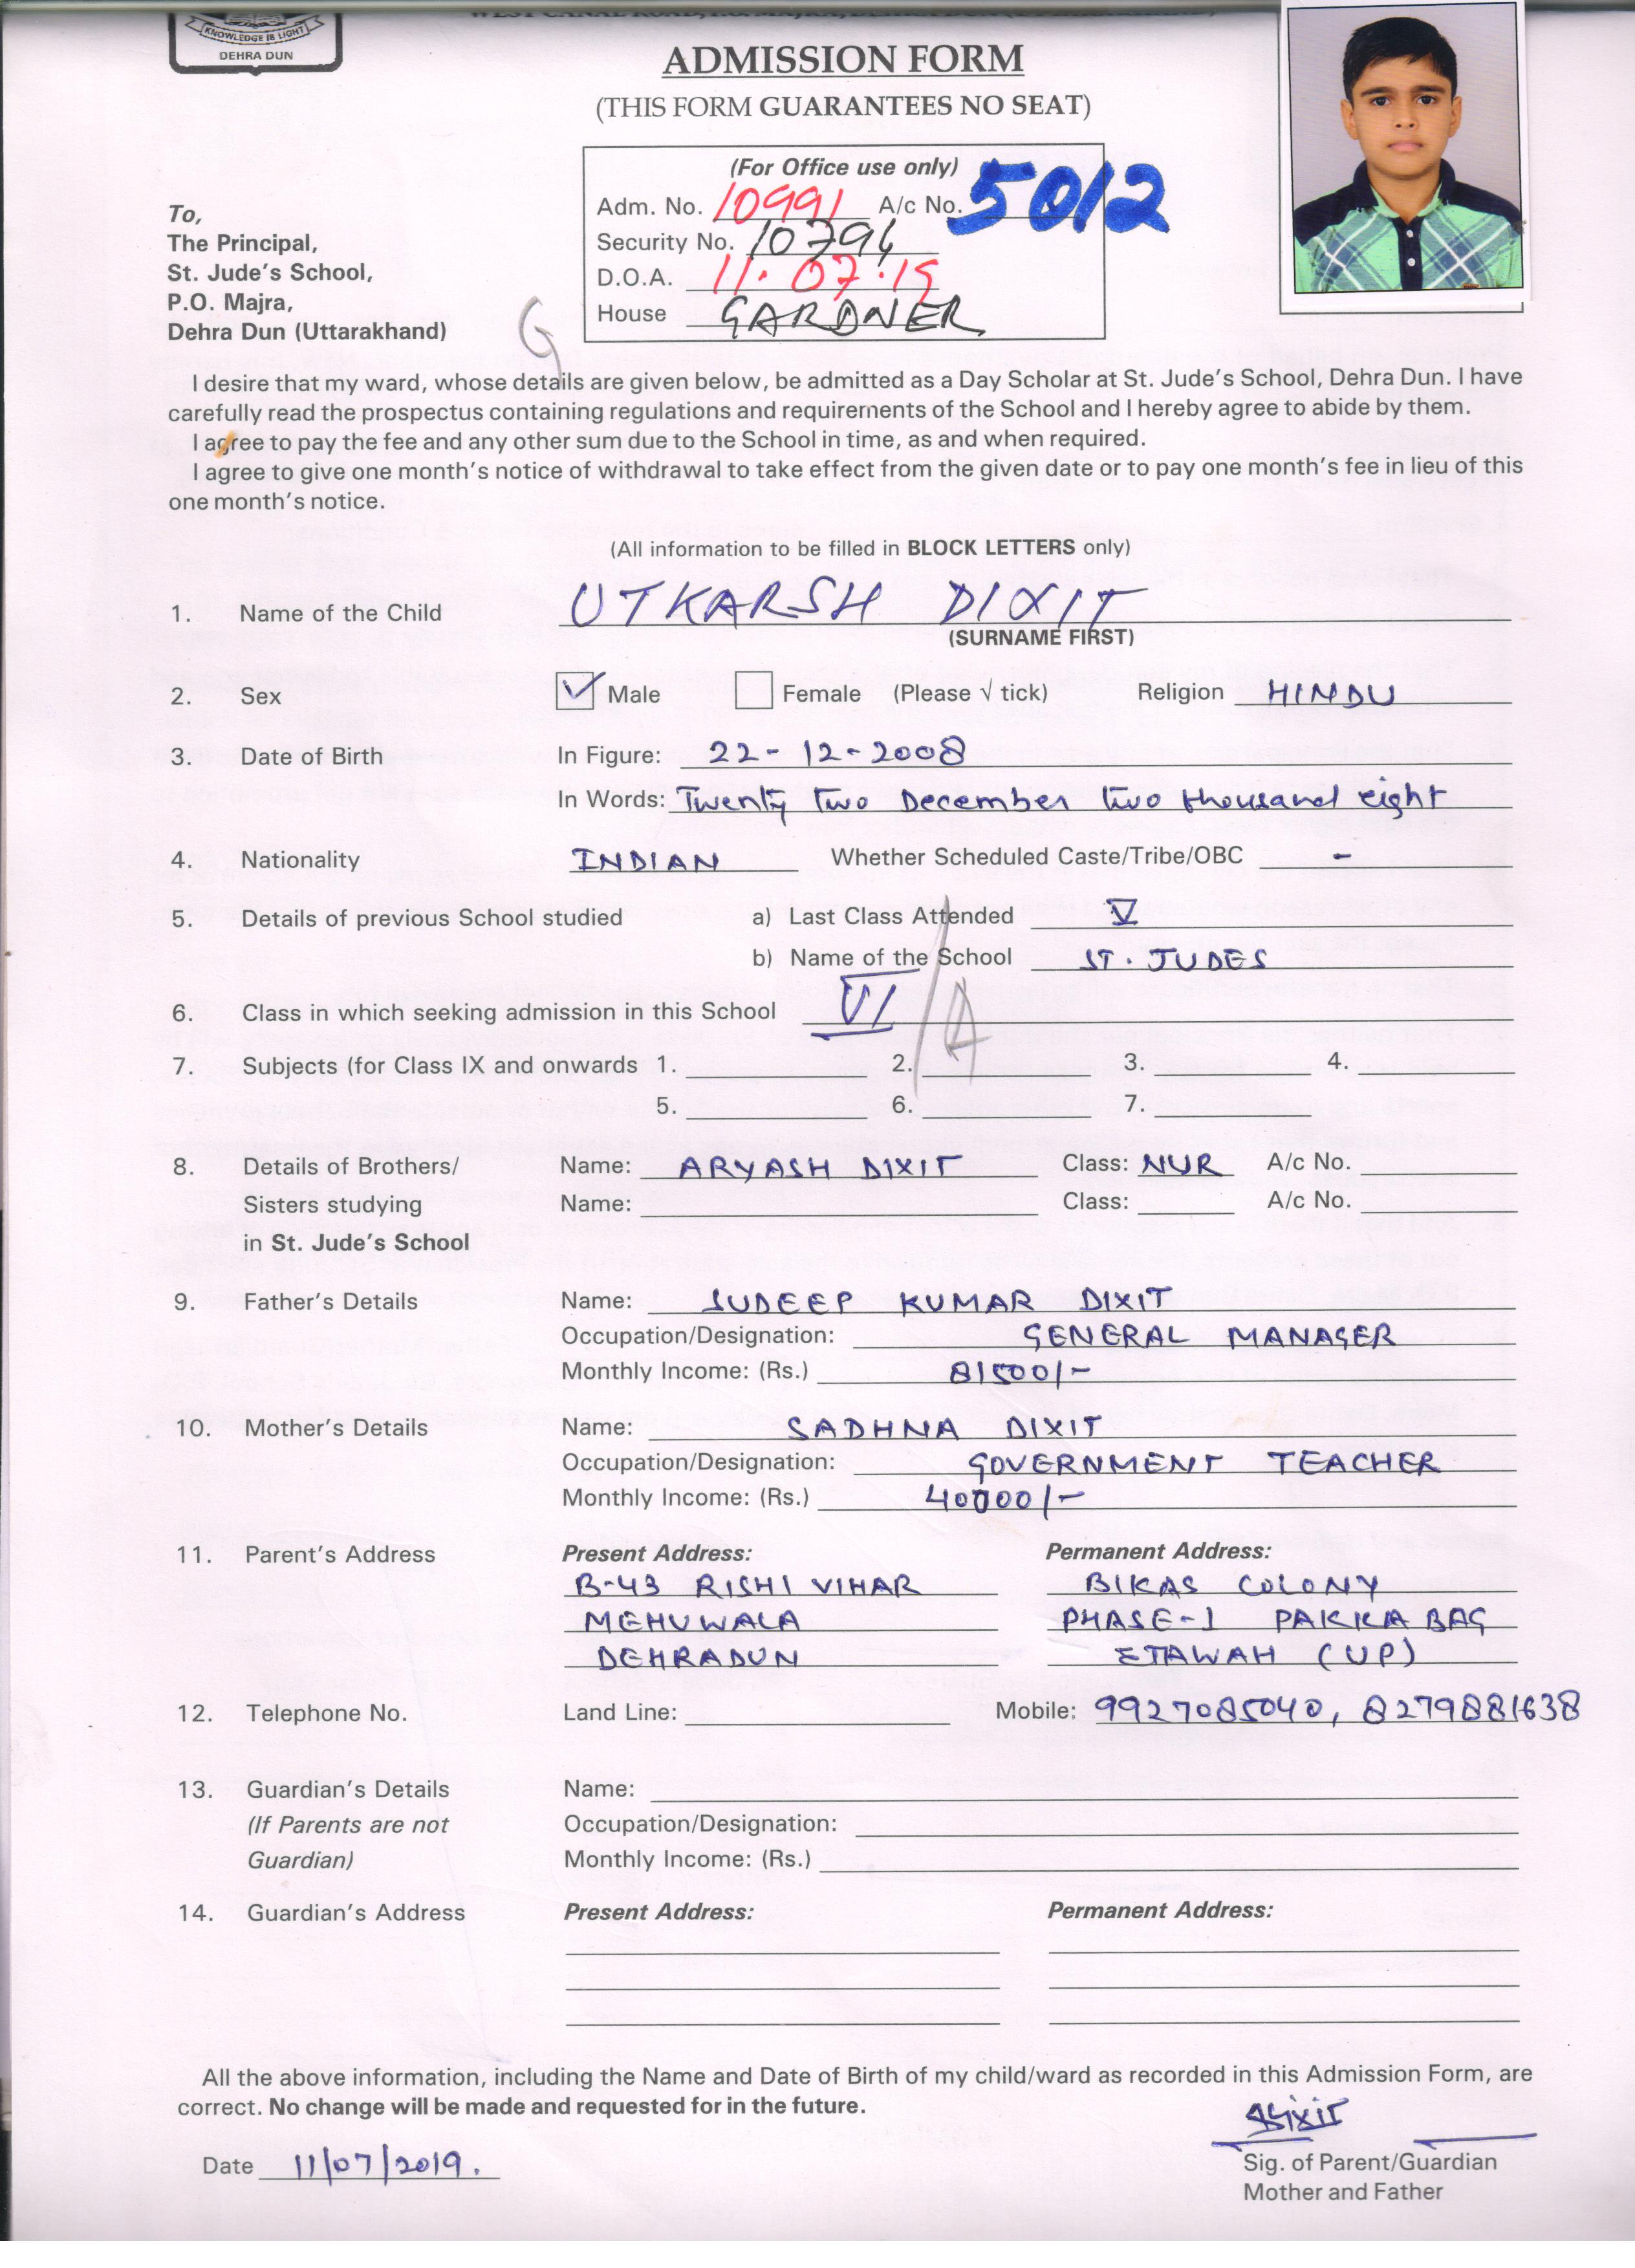 KNOWLEDGE IS LIGHT
DEHRA DUN
ADMISSION FORM
(THIS FORM GUARANTEES NO SEAT)
(For Office use only)
Adm. No. 10991 A/c No. 5012
Security No. 10794
D.O.A. 11.07.19
House GARDNER
To,
The Principal,
St. Jude's School,
P.O. Majra,
Dehra Dun (Uttarakhand)
G
I desire that my ward, whose details are given below, be admitted as a Day Scholar at St. Jude's School, Dehra Dun. I have
carefully read the prospectus containing regulations and requirements of the School and I hereby agree to abide by them.
I agree to pay the fee and any other sum due to the School in time, as and when required.
I agree to give one month's notice of withdrawal to take effect from the given date or to pay one month's fee in lieu of this
one month's notice.
(All information to be filled in BLOCK LETTERS only)
1. Name of the Child UTKARSH DIXIT
(SURNAME FIRST)
2. Sex Male Female (Please √ tick) Religion HINDU
3. Date of Birth In Figure: 22-12-2008
In Words: Twenty two December two thousand eight
4. Nationality INDIAN Whether Scheduled Caste/Tribe/OBC -
5. Details of previous School studied a) Last Class Attended V
b) Name of the School ST. JUDES
6. Class in which seeking admission in this School VI/A
7. Subjects (for Class IX and onwards 1. 2. 3. 4.
5. 6. 7.
8. Details of Brothers/ Name: ARYASH DIXIT Class: NUR A/c No.
Sisters studying Name: Class: A/c No.
in St. Jude's School
9. Father's Details Name: SUDEEP KUMAR DIXIT
Occupation/Designation: GENERAL MANAGER
Monthly Income: (Rs.) 81500/-
10. Mother's Details Name: SADHNA DIXIT
Occupation/Designation: GOVERNMENT TEACHER
Monthly Income: (Rs.) 40000/-
11. Parent's Address Present Address: Permanent Address:
B-43 RISHI VIHAR BIKAS COLONY
MEHUWALA PHASE-1 PAKKA BAG
DEHRADUN ETAWAH (UP)
12. Telephone No. Land Line: Mobile: 9927085040, 8279881638
13. Guardian's Details Name:
(If Parents are not Occupation/Designation:
Guardian) Monthly Income: (Rs.)
14. Guardian's Address Present Address: Permanent Address:
All the above information, including the Name and Date of Birth of my child/ward as recorded in this Admission Form, are
correct. No change will be made and requested for in the future.
Date 11/07/2019.
Sig. of Parent/Guardian
Mother and Father